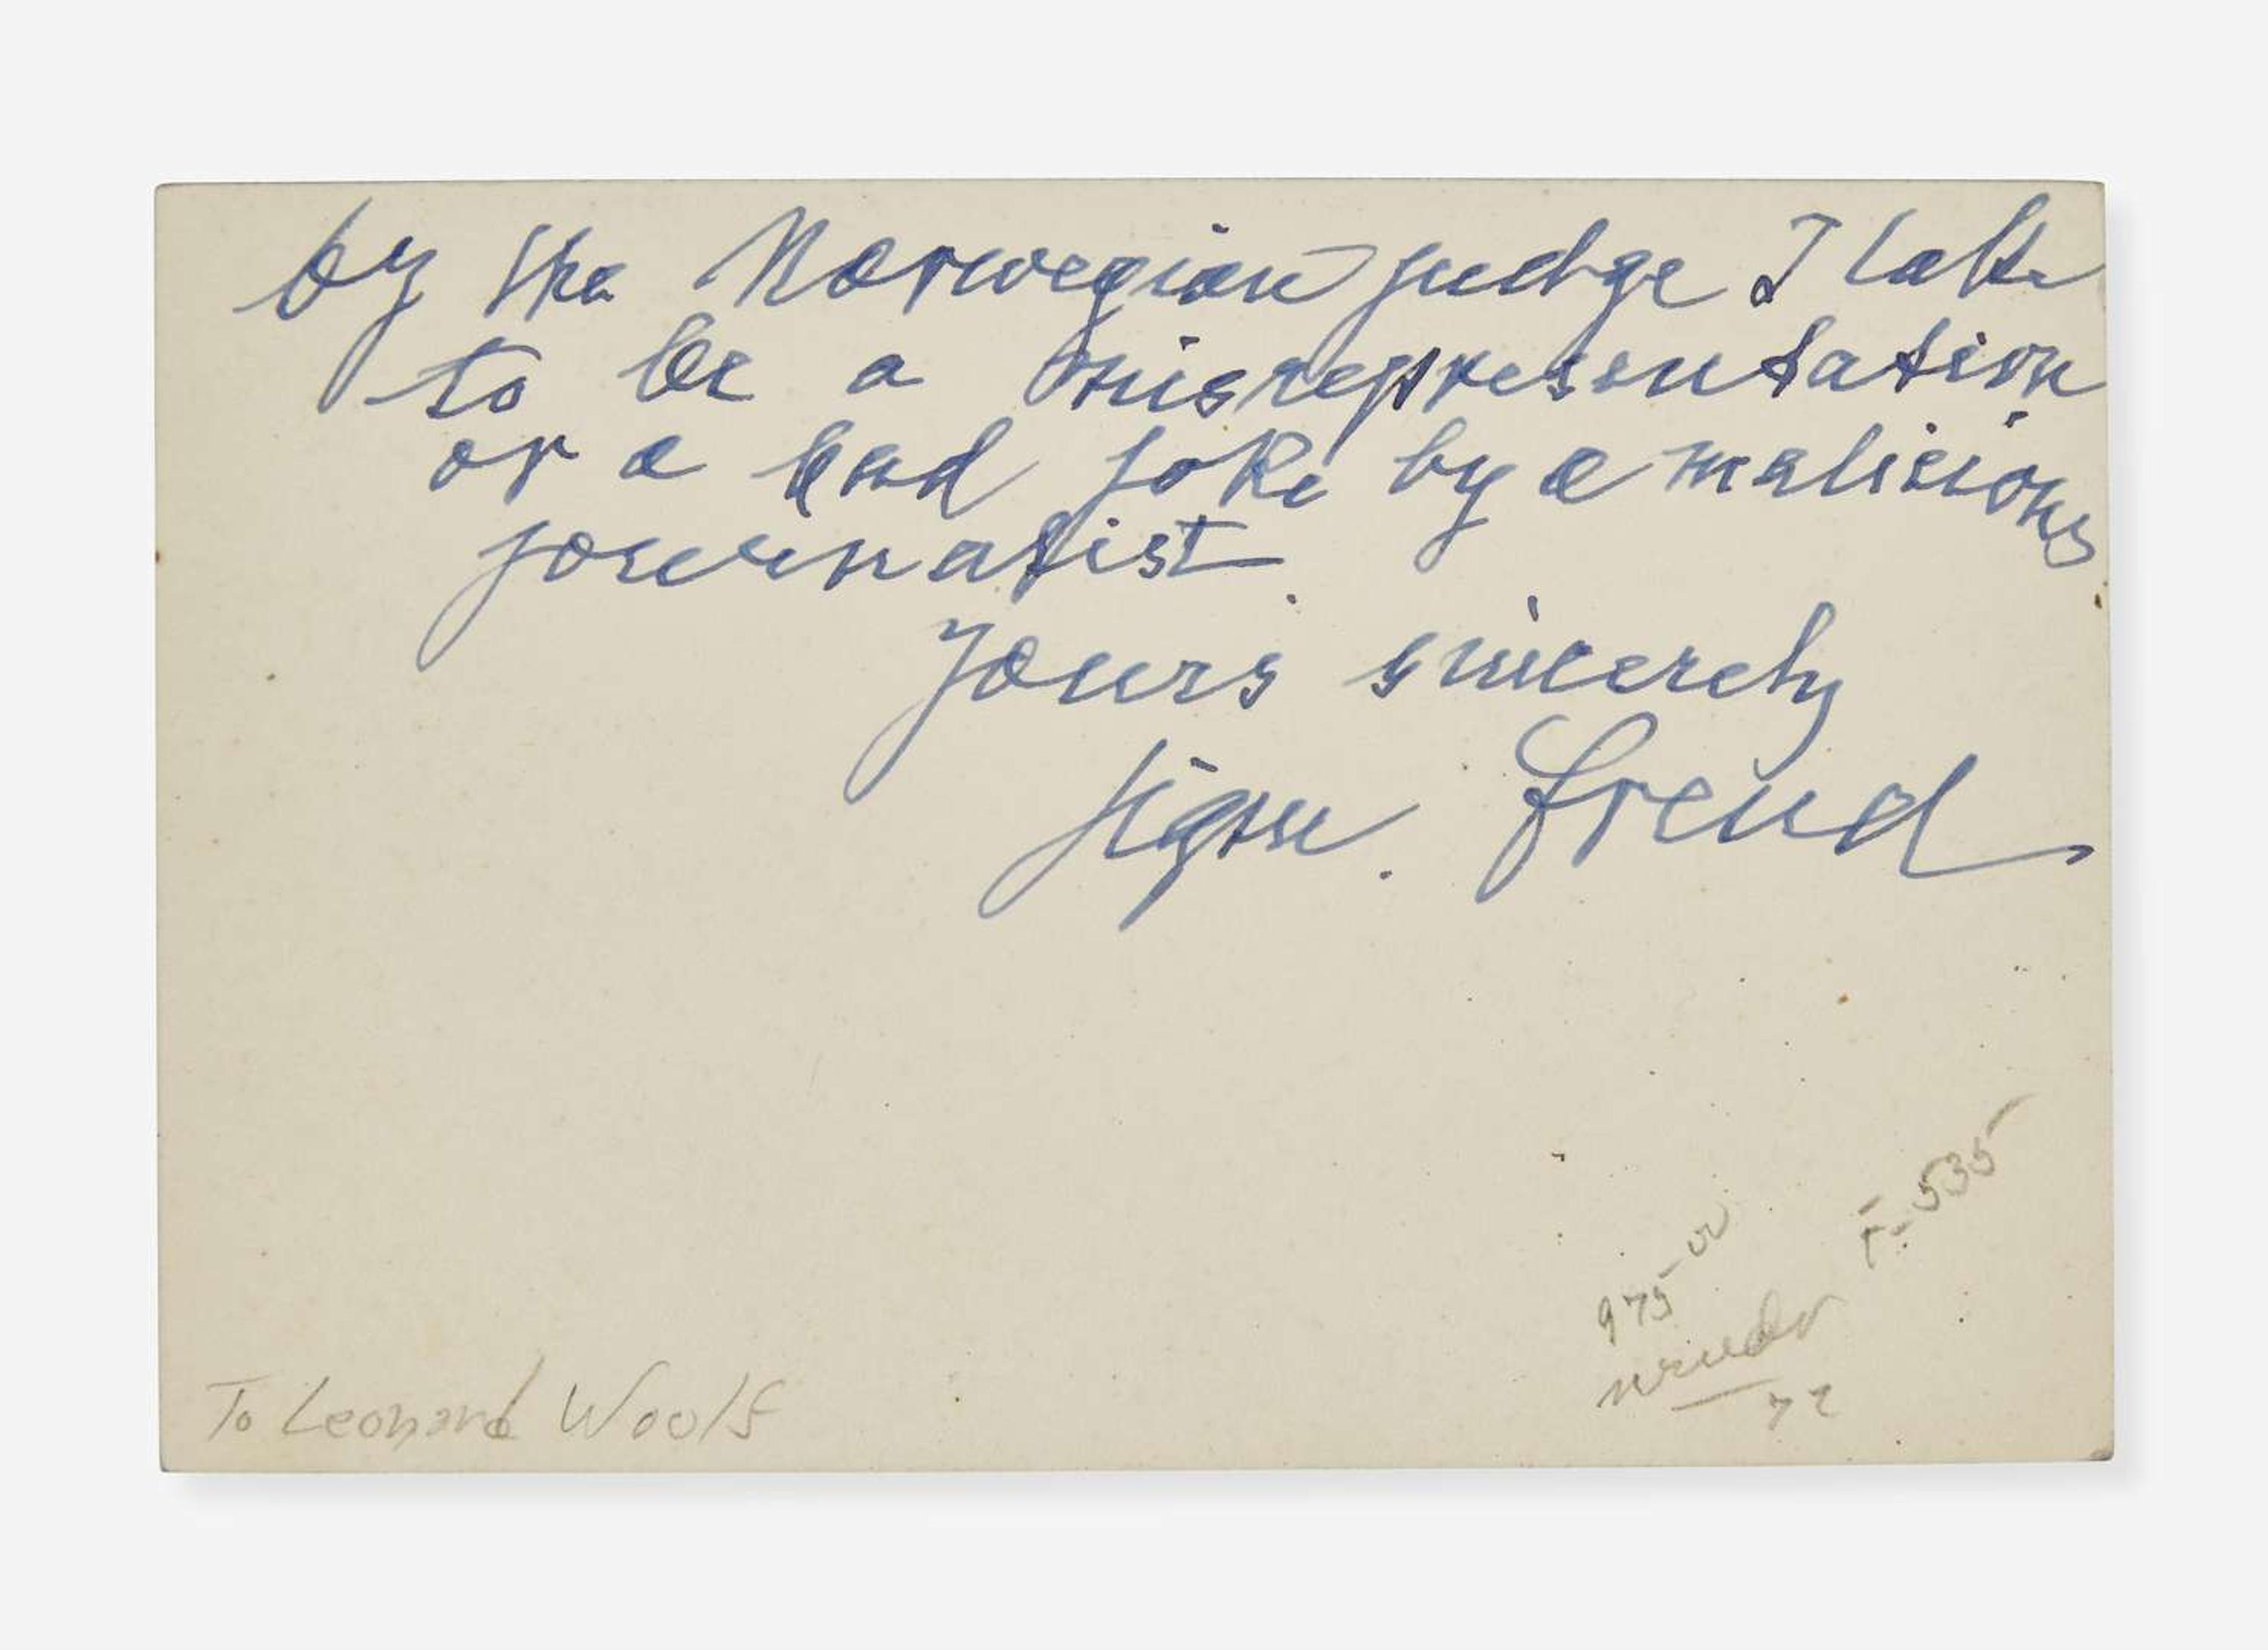 by the Norwegian judge I take
to be a misrepresentation
or a bad joke by a malicious
journalist.
Yours sincerely
Sigm. Freud
F. 535
975-00
72
To Leonard Woolf